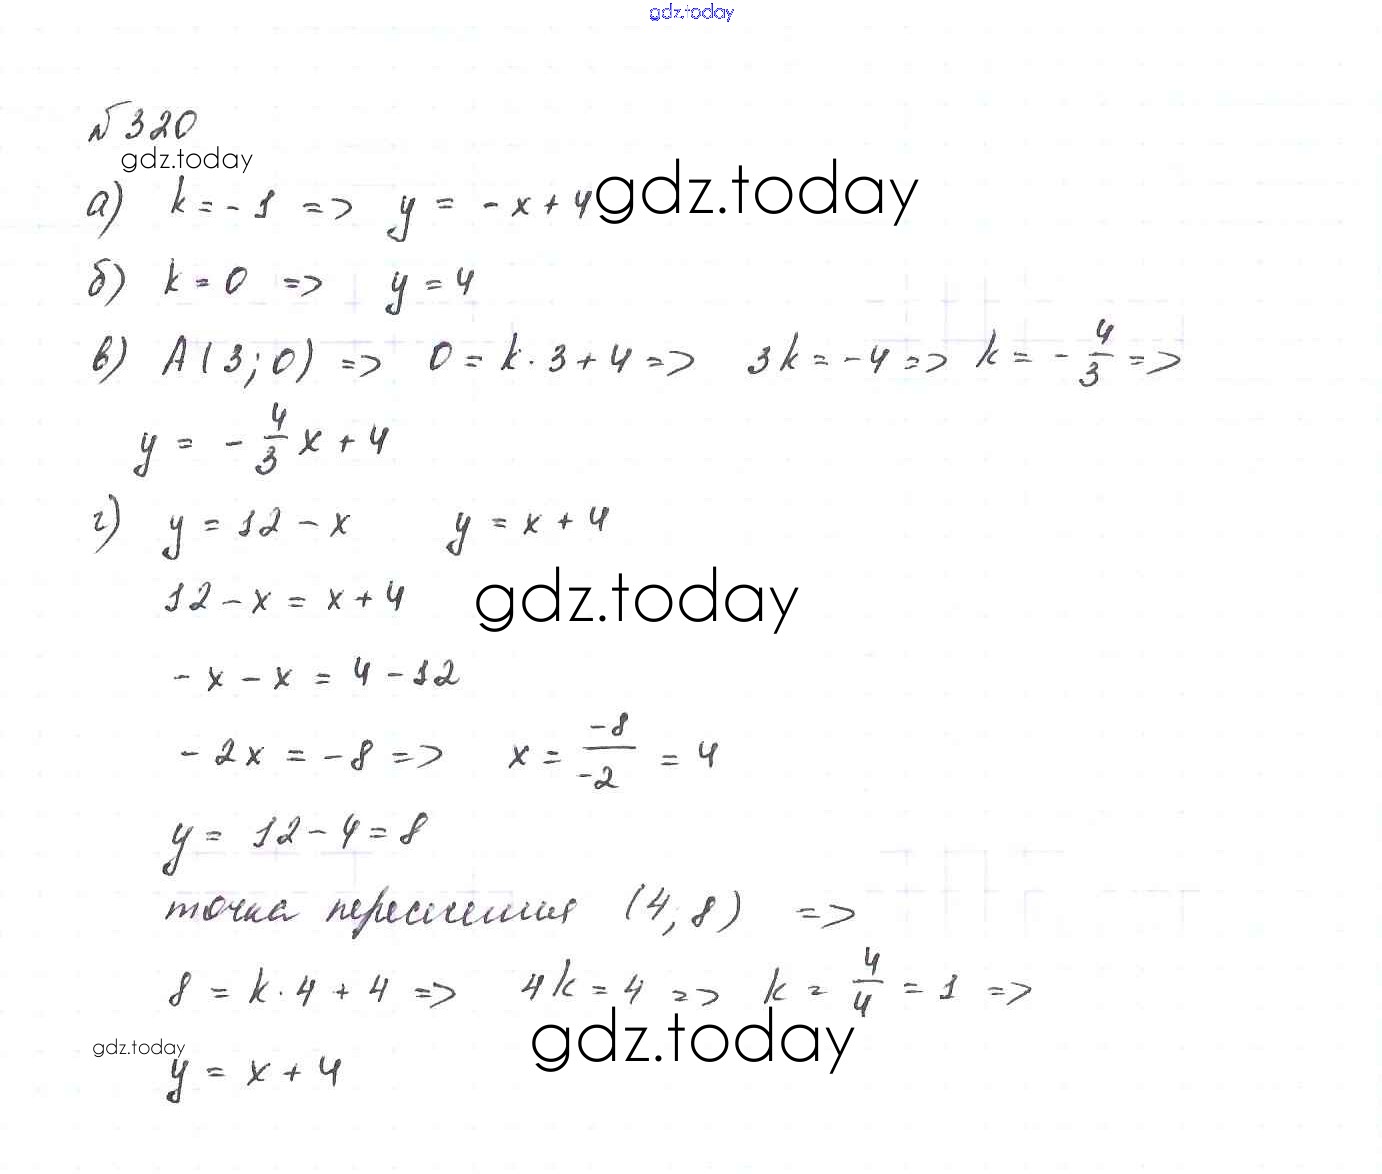 gdz.today
№320
gdz.today
а) k = -1 => y = -x + 4 gdz.today
б) k = 0 => y = 4
в) A(3; 0) => 0 = k · 3 + 4 => 3k = -4 => k = -4/3 =>
y = -4/3 x + 4
г) y = 12 - x y = x + 4
12 - x = x + 4 gdz.today
-x - x = 4 - 12
-2x = -8 => x = -8/-2 = 4
y = 12 - 4 = 8
точка пересечения (4, 8) =>
8 = k · 4 + 4 => 4k = 4 => k = 4/4 = 1 =>
gdz.today gdz.today
y = x + 4